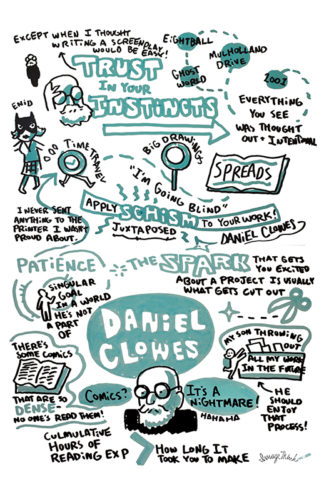 EXCEPT WHEN I THOUGHT
WRITING A SCREENPLAY
WOULD BE EASY!
TRUST
IN YOUR
INSTINCTS
EIGHTBALL
MULHOLLAND
DRIVE
GHOST
WORLD
2001
EVERYTHING
YOU SEE
WAS THOUGHT
OUT + INTENTIONAL
ENID
TIME TRAVEL
BIG DRAWINGS
SPREADS
"I'M GOING BLIND"
APPLY SCHISM TO YOUR WORK!
JUXTAPOSED
DANIEL CLOWES
I NEVER SENT
ANYTHING TO THE
PRINTER I WASN'T
PROUD ABOUT.
PATIENCE
SINGULAR
GOAL
IN A WORLD
HE'S NOT
A PART
OF
THE SPARK THAT GETS
YOU EXCITED
ABOUT A PROJECT IS USUALLY
WHAT GETS CUT OUT
DANIEL
CLOWES
THERE'S
SOME COMICS
THAT ARE SO
DENSE
NO ONE'S READ THEM!
MY SON THROWING
OUT
ALL MY WORK
IN THE FUTURE
HE
SHOULD
ENJOY
THAT
PROCESS!
COMICS?
IT'S A
NIGHTMARE!
HAHAHA
CULMULATIVE
HOURS OF
READING EXP
HOW LONG IT
TOOK YOU TO MAKE